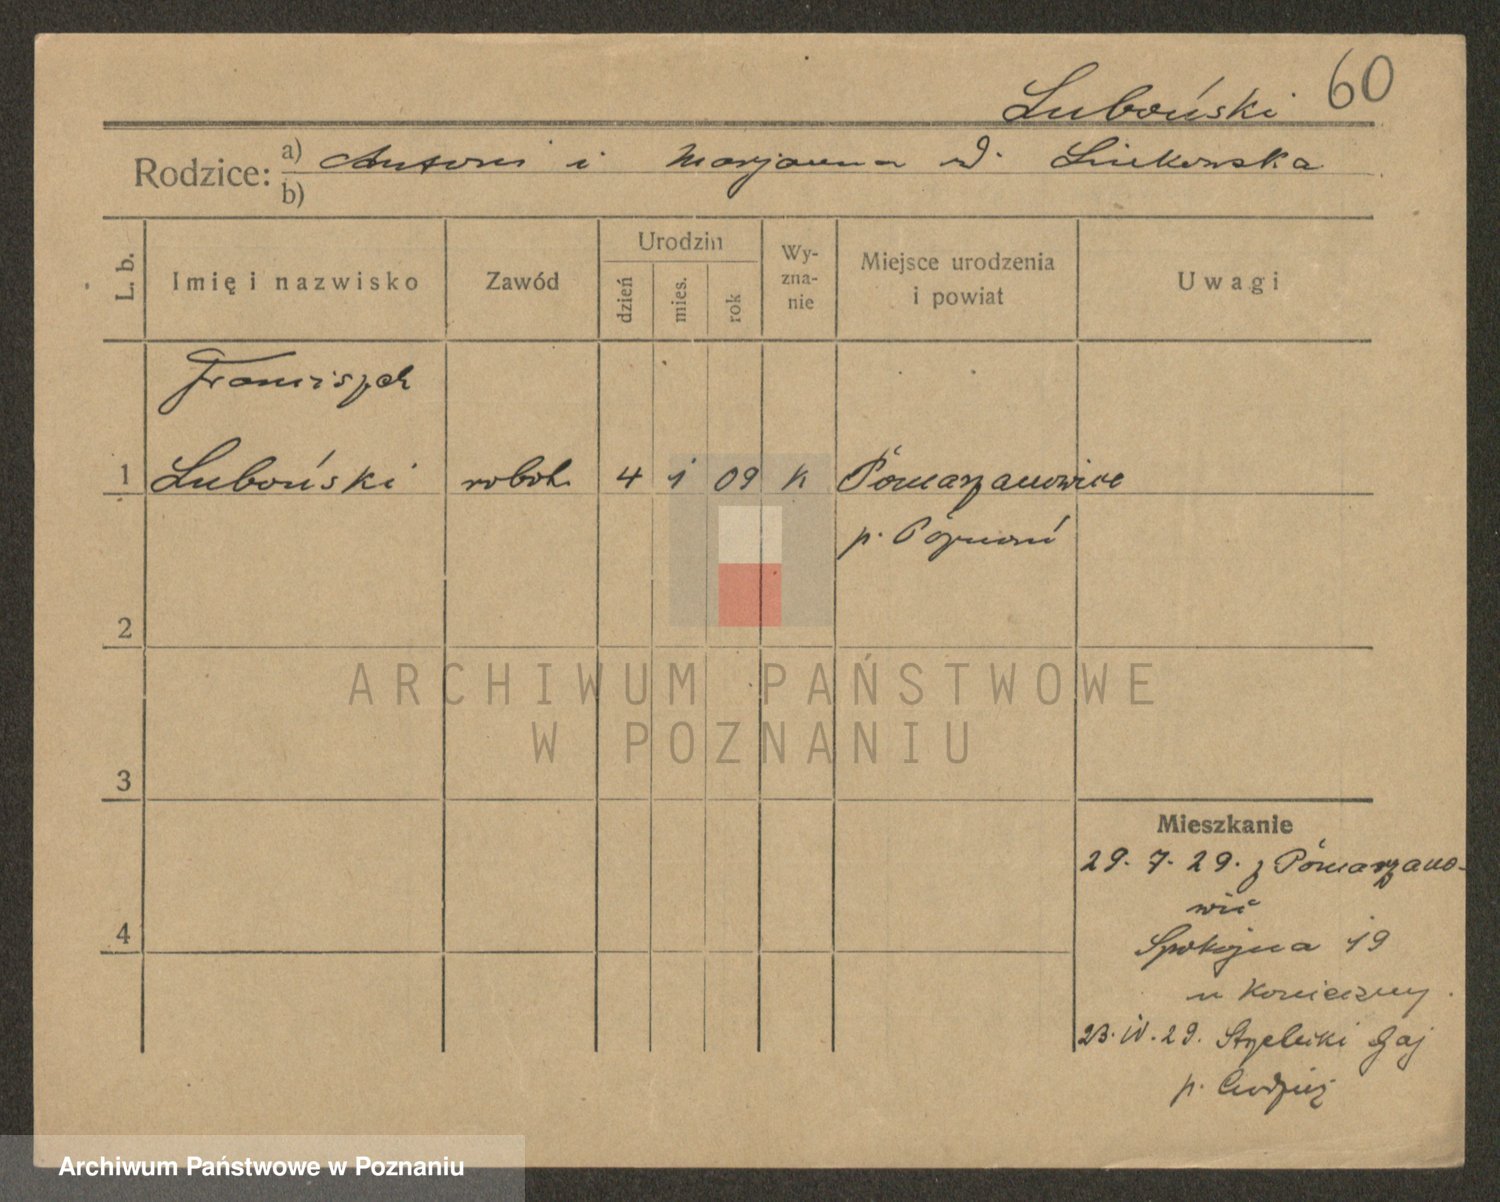 Luboński 60
Rodzice: a) Antoni i Marjanna d. Linkowska
b)
L. b. Imię i nazwisko Zawód Urodzin dzień mies. rok Wyzna-nie Miejsce urodzenia i powiat Uwagi
Franciszek
1 Luboński robotn. 4 1 09 k Pomarzanowice
p. Poznań
2
3
4
Mieszkanie
29. 7. 29. z Pomarzano-
wic
Spokojna 19
u Koniecznej
23. IV. 29. Strzelecki Gaj
p.
ARCHIWUM PAŃSTWOWE
W POZNANIU
Archiwum Państwowe w Poznaniu